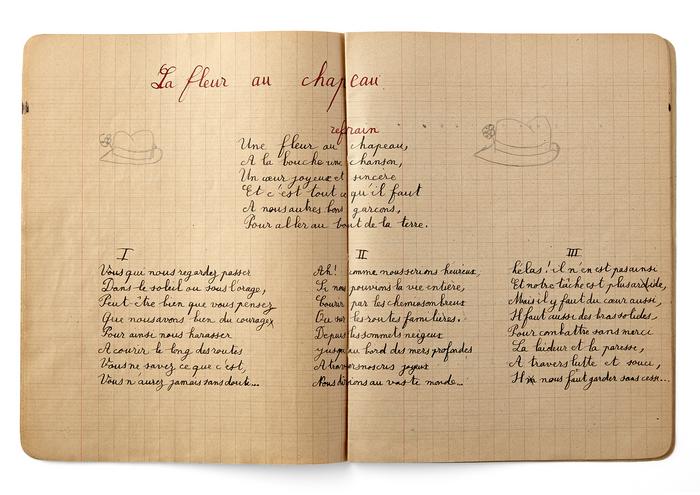 La fleur au chapeau
refrain
Une fleur au chapeau,
A la bouche une chanson,
Un cœur joyeux et sincère
Et c'est tout ce qu'il faut
A nous autres bons garçons,
Pour aller au bout de la terre.
I
Vous qui nous regardez passer
Dans le soleil ou sous l'orage,
Peut-être bien que vous pensez
Que nous avons bien du courage
Pour ainsi nous harasser
A courir le long des routes
Vous ne savez ce que c'est,
Vous n'aurez jamais sans doute...
II
Ah! comme nous serions heureux,
Si nous pouvions la vie entière,
Courir par les chemins ombreux
Ou sur les routes familières.
Depuis les sommets neigeux
jusqu'au bord des mers profondes
A travers nos cris joyeux
Nous dirions au vaste monde...
III
hélas! il n'en est pas ainsi
Et notre tâche est plus aride,
Mais il y faut du cœur aussi,
Il faut aussi des bras solides,
Pour combattre sans merci
La laideur et la paresse,
A travers lutte et souci,
Il nous faut garder sans cesse...